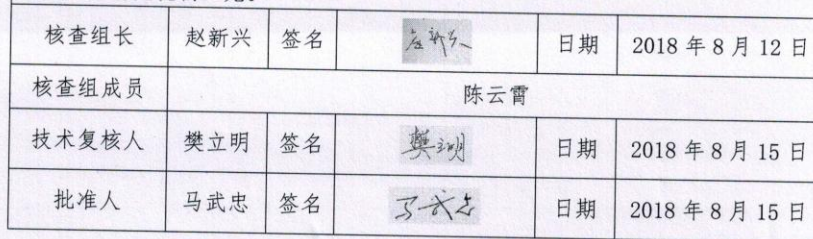 核查组长 赵新兴 签名 赵新兴 日期 2018年8月12日
核查组成员 陈云霄
技术复核人 樊立明 签名 樊立明 日期 2018年8月15日
批准人 马武忠 签名 马武忠 日期 2018年8月15日